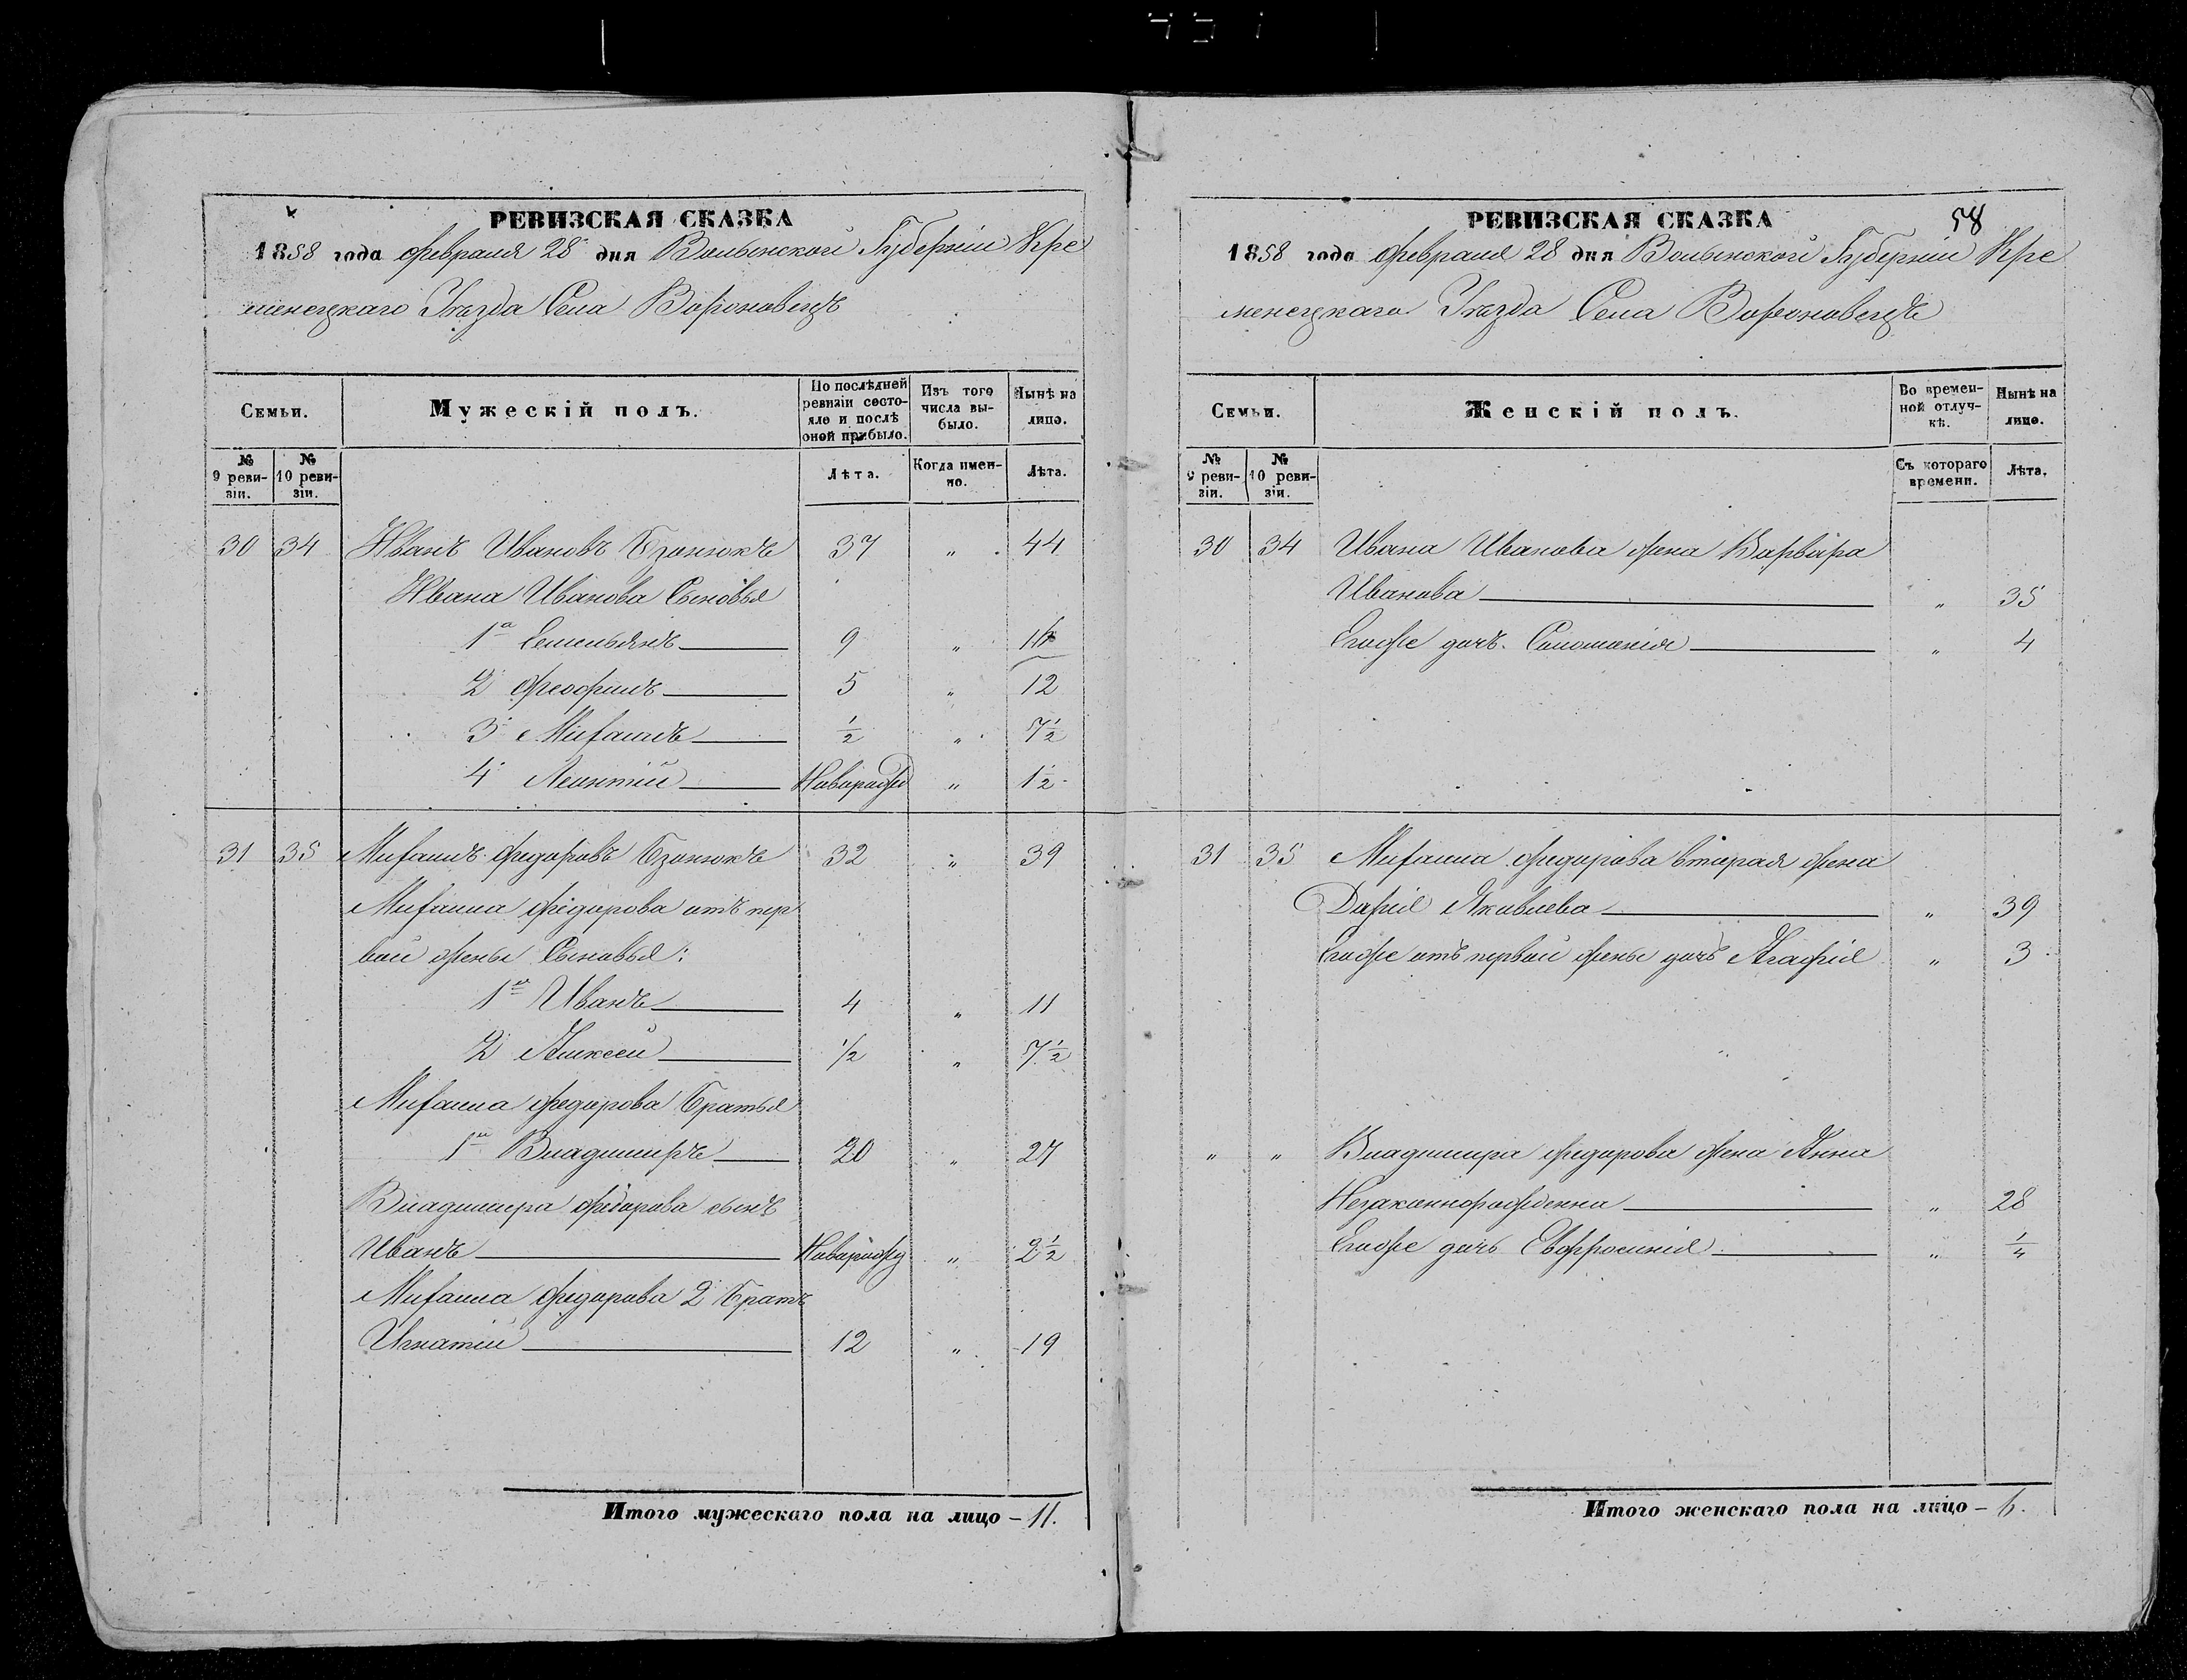 РЕВИЗСКАЯ СКАЗКА
1858 года февраля 28 дня Волынской Губернiи Кре
менецкаго Уѣзда Села Вороновецъ
Семьи.
Мужескiй полъ.
По послѣдней ревизiи состояло и послѣ оной прибыло.
Изъ того числа выбыло.
Нынѣ на лицо.
№ 9 ревизiи.
№ 10 ревизiи.
Лѣта.
Когда имен-но.
Лѣта.
30 34 Иванъ Ивановъ Бзанюкъ 37 „ 44
Ивана Иванова Сыновья
1й Семельянъ 9 „
2 Феофилъ 5 „ 12
3 Михаилъ ½ „ 7½
4 Леонтiй Новорожд „ 1½
31 35 Михаилъ Федоровъ Бзанюкъ 32 „ 39
Михаила Федорова отъ пер
вой жены Сыновья:
1й Иванъ 4 „ 11
2 Алексей ½ „ 7½
Михаила Федорова Братья
1й Владимиръ 20 „ 27
Владимира Федорова сынъ
Иванъ Новорожд „ 2½
Михаила Федорова 2 Братъ
Игнатiй 12 „ 19
Итого мужескаго пола на лицо – 11.
РЕВИЗСКАЯ СКАЗКА 58
1858 года февраля 28 дня Волынской Губернiи Кре
менецкаго Уѣзда Села Вороновецъ
Семьи.
Женскiй полъ.
Во времен-ной отлуч-кѣ.
Нынѣ на лицо.
№ 9 ревизiи.
№ 10 ревизiи.
Съ котораго времени.
Лѣта.
30 34 Ивана Иванова жена Варвара
Иванова „ 35
Егожъ дочь Соломанiя „ 4
31 35 Михаила Федорова вторая жена
Дарiя Яковлева „ 39
Егоже отъ первой жены дочь Агафiя „ 3
„ „ Владимира Федорова жена Анна
Незаконнорожденна „ 28
Егоже дочь Евфросинiя „ ¼
Итого женскаго пола на лицо – 6.